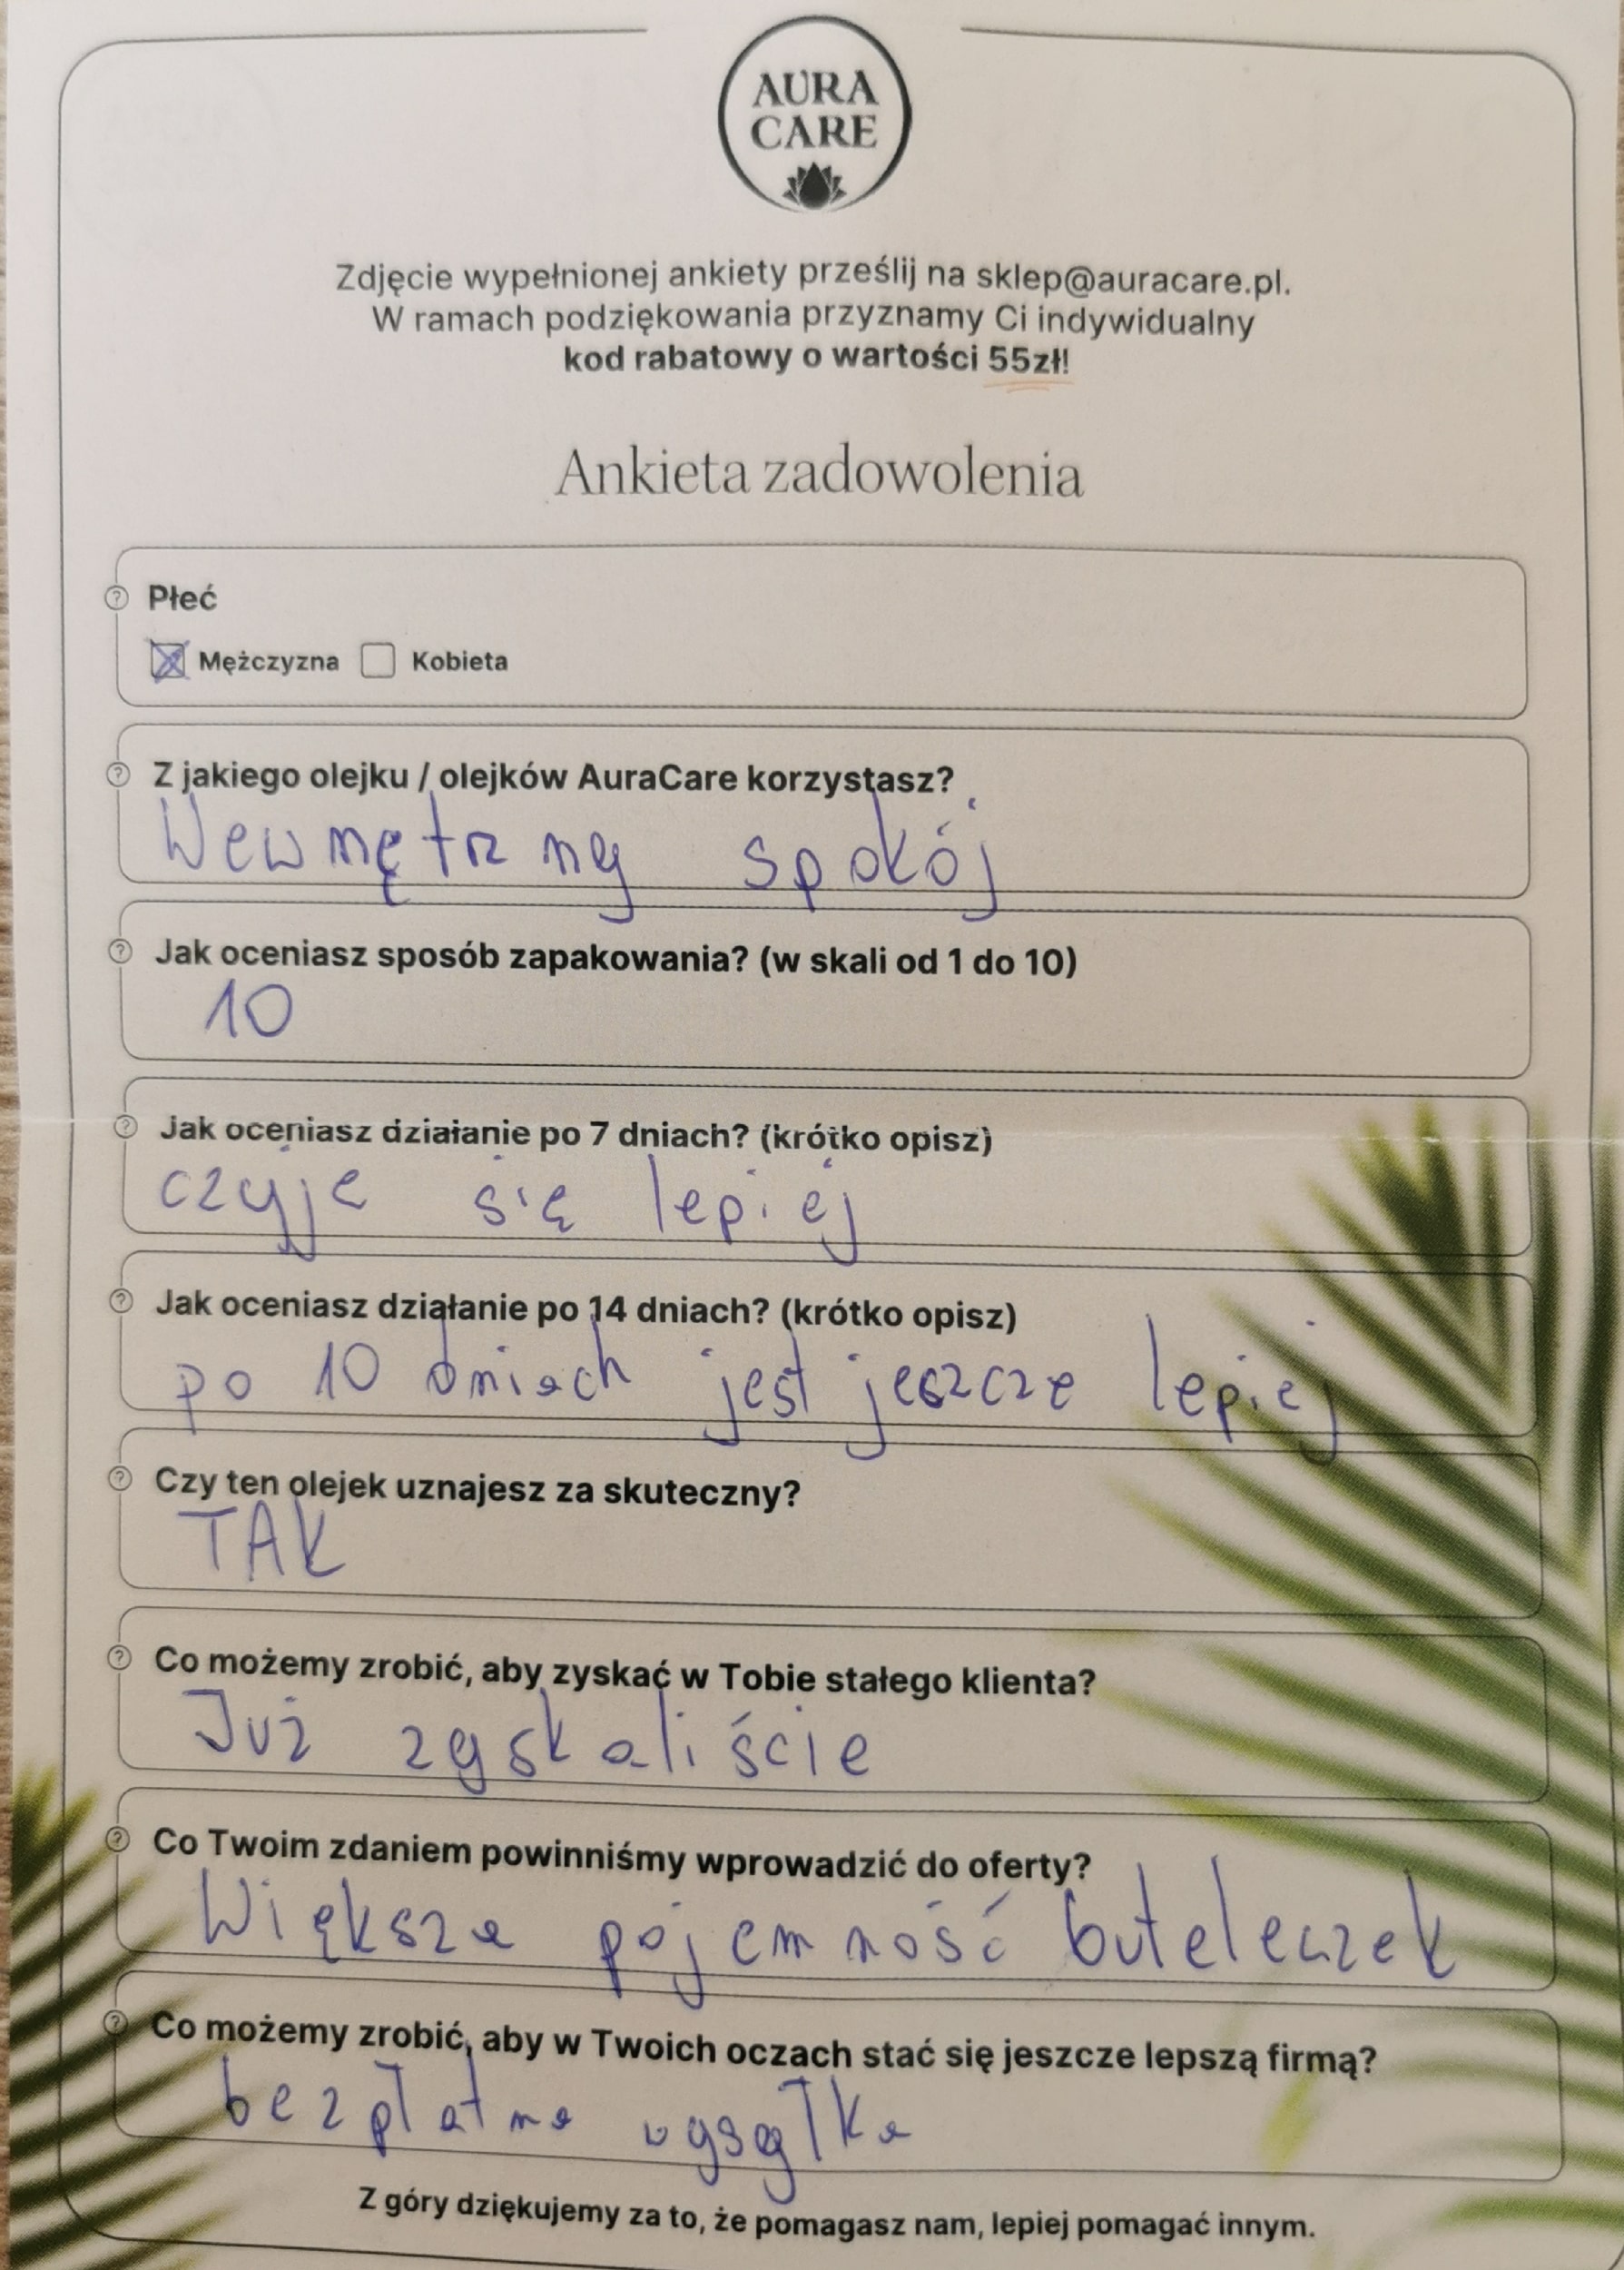 AURA
CARE
Zdjęcie wypełnionej ankiety prześlij na sklep@auracare.pl.
W ramach podziękowania przyznamy Ci indywidualny
kod rabatowy o wartości 55zł!
Ankieta zadowolenia
Płeć
Mężczyzna Kobieta
Z jakiego olejku / olejków AuraCare korzystasz?
Wewnętrzny spokój
Jak oceniasz sposób zapakowania? (w skali od 1 do 10)
10
Jak oceniasz działanie po 7 dniach? (krótko opisz)
czyje się lepiej
Jak oceniasz działanie po 14 dniach? (krótko opisz)
po 10 dniach jest jeszcze lepiej
Czy ten olejek uznajesz za skuteczny?
TAK
Co możemy zrobić, aby zyskać w Tobie stałego klienta?
Już zyskaliście
Co Twoim zdaniem powinniśmy wprowadzić do oferty?
Większa pojemność buteleczek
Co możemy zrobić, aby w Twoich oczach stać się jeszcze lepszą firmą?
bezpłatna wysyłka
Z góry dziękujemy za to, że pomagasz nam, lepiej pomagać innym.